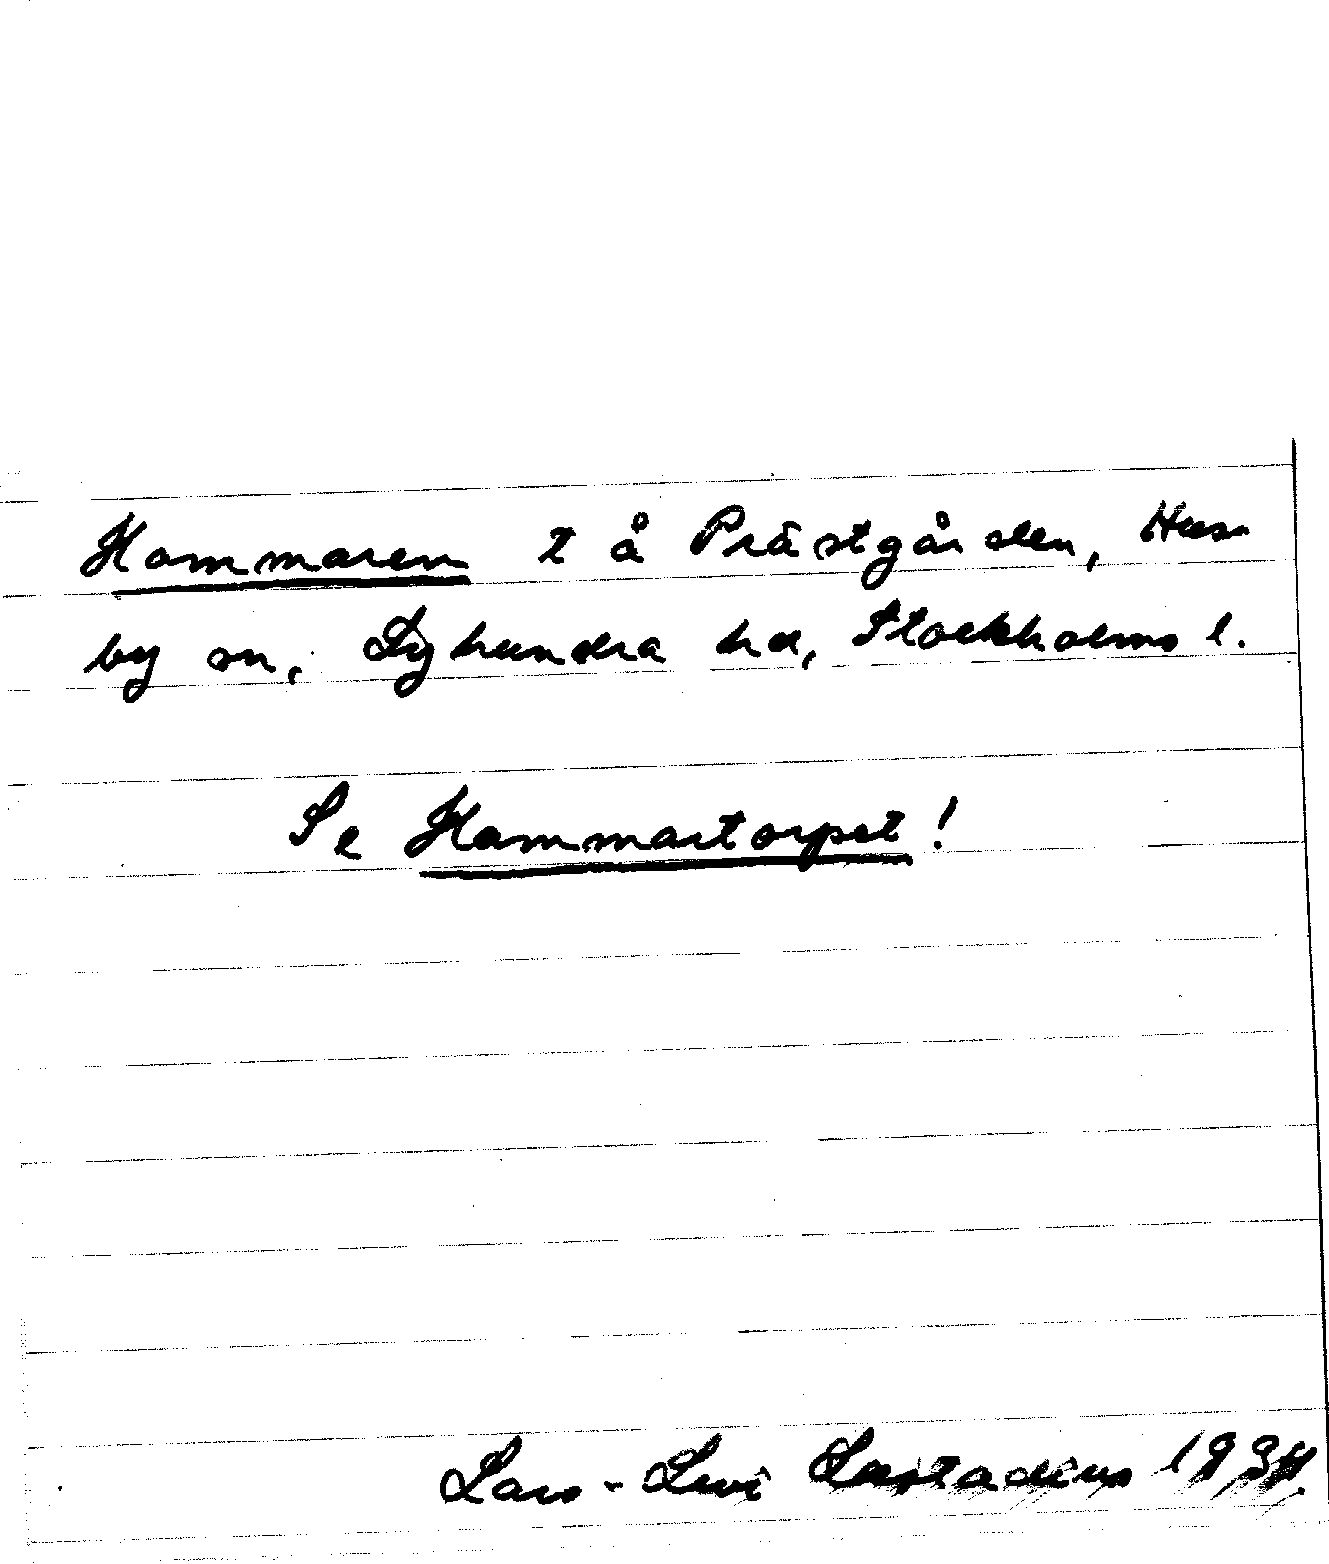 Hammaren t å Prästgården, Hus-
by sn, Lyhundra hd, Stockholms l.
Se Hammartorpet!
Lars-Levi Læstadius 1934.